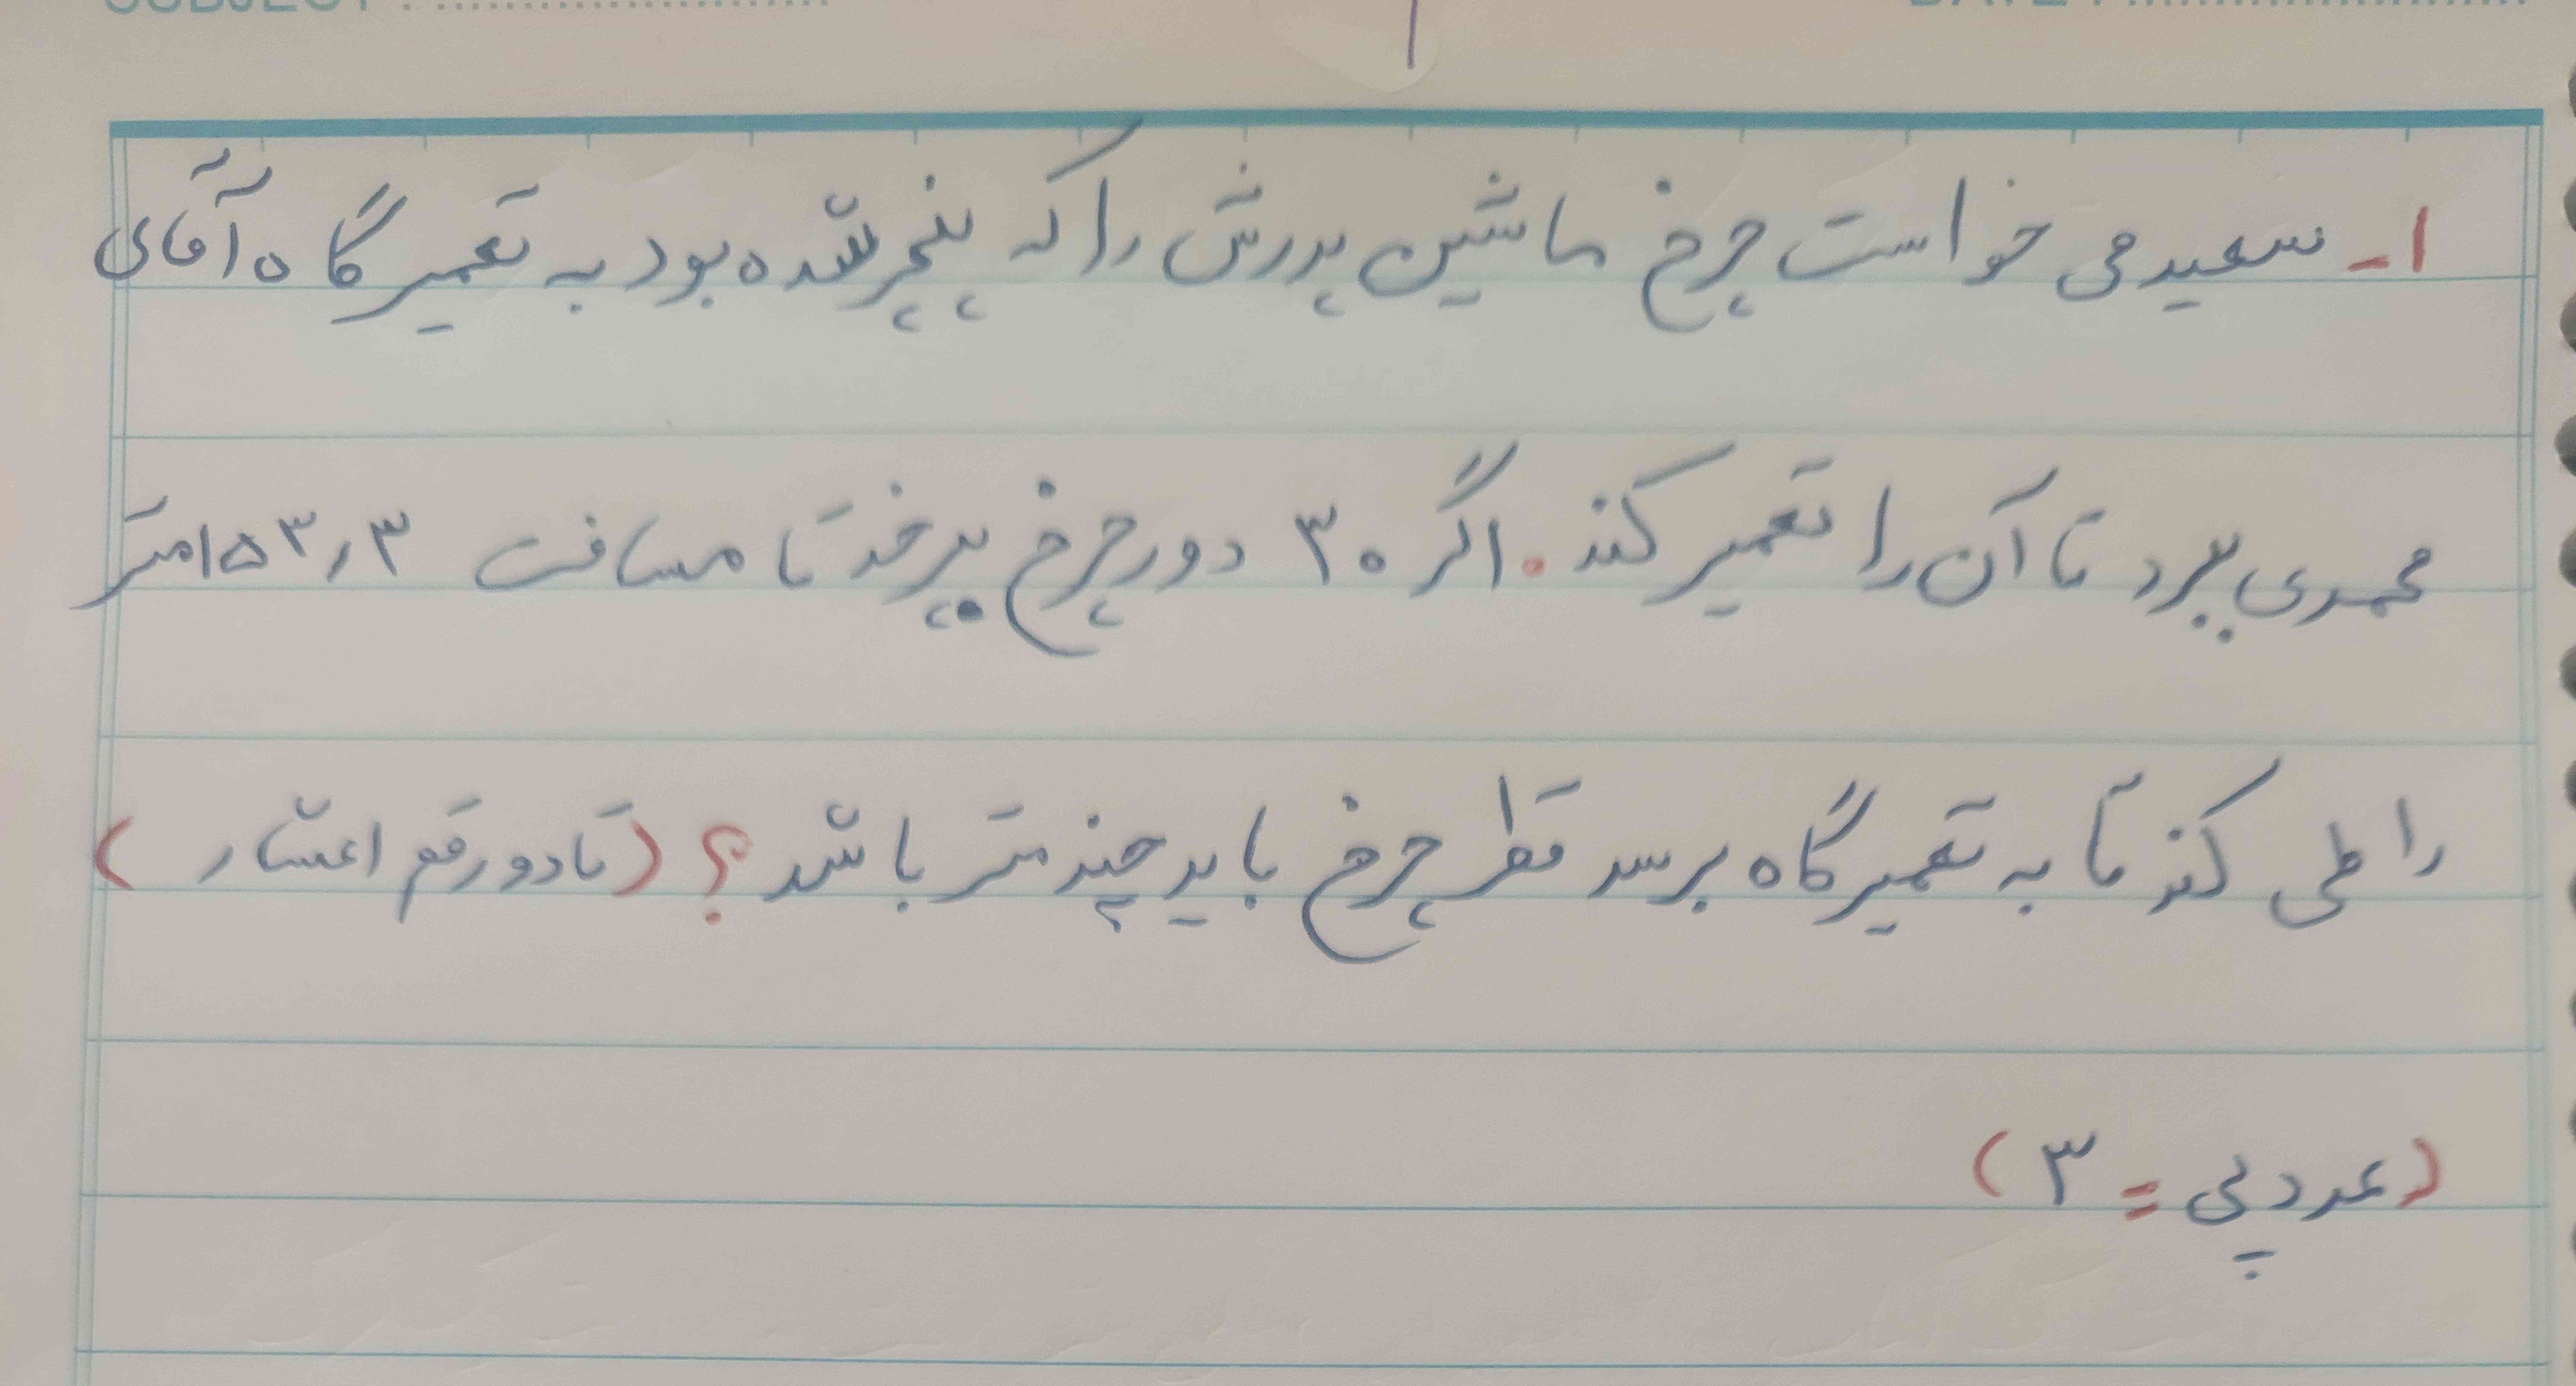 ۱- سعید می خواست چرخ ماشین پدرش را که پنچر شده بود به تعمیرگاه آقای
محمدی ببرد تا آن را تعمیر کند. اگر ۳۰ دور چرخ بچرخد تا مسافت ۱۵۳,۳ متر
را طی کند تا به تعمیرگاه برسد قطر چرخ باید چند متر باشد؟ (تا دو رقم اعشار)
(عدد پی = ۳)